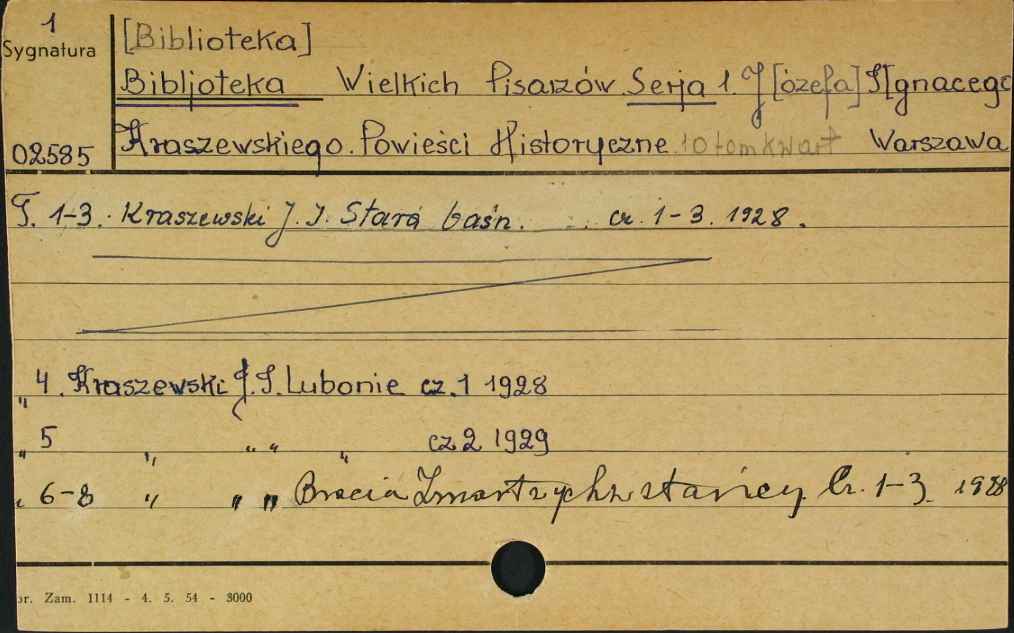 1
Sygnatura
02585
[Biblioteka]
Bibljoteka Wielkich Pisarzów. Serja 1. J[ózefa] I[gnacego
Kraszewskiego. Powieści Historyczne. 10 tom kwart Warszawa
T. 1-3. Kraszewski J. I. Stara baśń. cz. 1-3. 1928.
„ 4. Kraszewski J. I. Lubonie cz. 1 1928
„ 5 „ „ „ „ cz 2 1929
„ 6-8 „ „ „ Bracia Zmartwychwstańcy. Cz. 1-3. 1928
or. Zam. 1114 - 4. 5. 54 - 3000